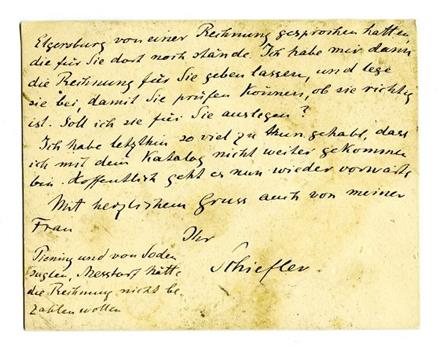 Elgersburg von einer Rechnung gesprochen hatten
die für Sie dort noch stände. Ich habe mir dann
die Rechnung für Sie geben lassen, und lege
sie bei, damit Sie prüfen können, ob sie richtig
ist. Soll ich sie für Sie auslegen?
Ich habe letzthin so viel zu thun gehabt, dass
ich mit dem Katalog nicht weiter gekommen
bin. Hoffentlich geht es nun wieder vorwärts
Mit herzlichem Gruss auch von meiner
Frau
Ihr
Schiefler.
und von Soden
sagten, hätte
die Rechnung nicht be-
zahlen wollen